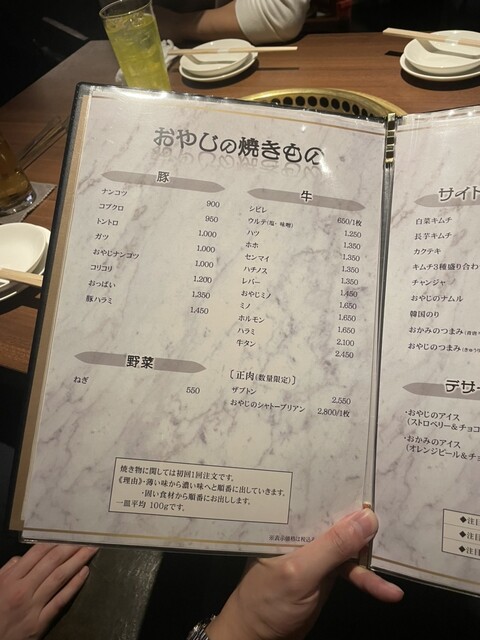 おやじの焼きもの
豚
ナンコツ 900
コブクロ 950
トントロ 1.000
ガツ 1.000
おやじナンコツ 1.000
コリコリ 1.200
おっぱい 1.350
豚ハラミ 1.450
野菜
ねぎ 550
牛
シビレ 650/1枚
ウルテ(塩・味噌) 1.250
ハツ 1.350
ホホ 1.350
センマイ 1.350
ハチノス 1.350
レバー 1.450
おやじミノ 1.650
ミノ 1.650
ホルモン 1.650
ハラミ 2.100
牛タン 2.450
[正肉(数量限定)]
ザブトン 2.550
おやじのシャトーブリアン 2.800/1枚
焼き物に関しては初回1回注文です。
《理由》・薄い味から濃い味へと順番に出していきます。
・固い食材から順番にお出しします。
一皿平均 100gです。
※表示価格は税込
サイド
白菜キムチ
長芋キムチ
カクテキ
キムチ3種盛り合わ
チャンジャ
おやじのナムル
韓国のり
おかみのつまみ
おやじのつまみ
デザー
・おやじのアイス
(ストロベリー&チョコ
・おかみのアイス
(オレンジピール&チョ
◆注
◆注
◆注